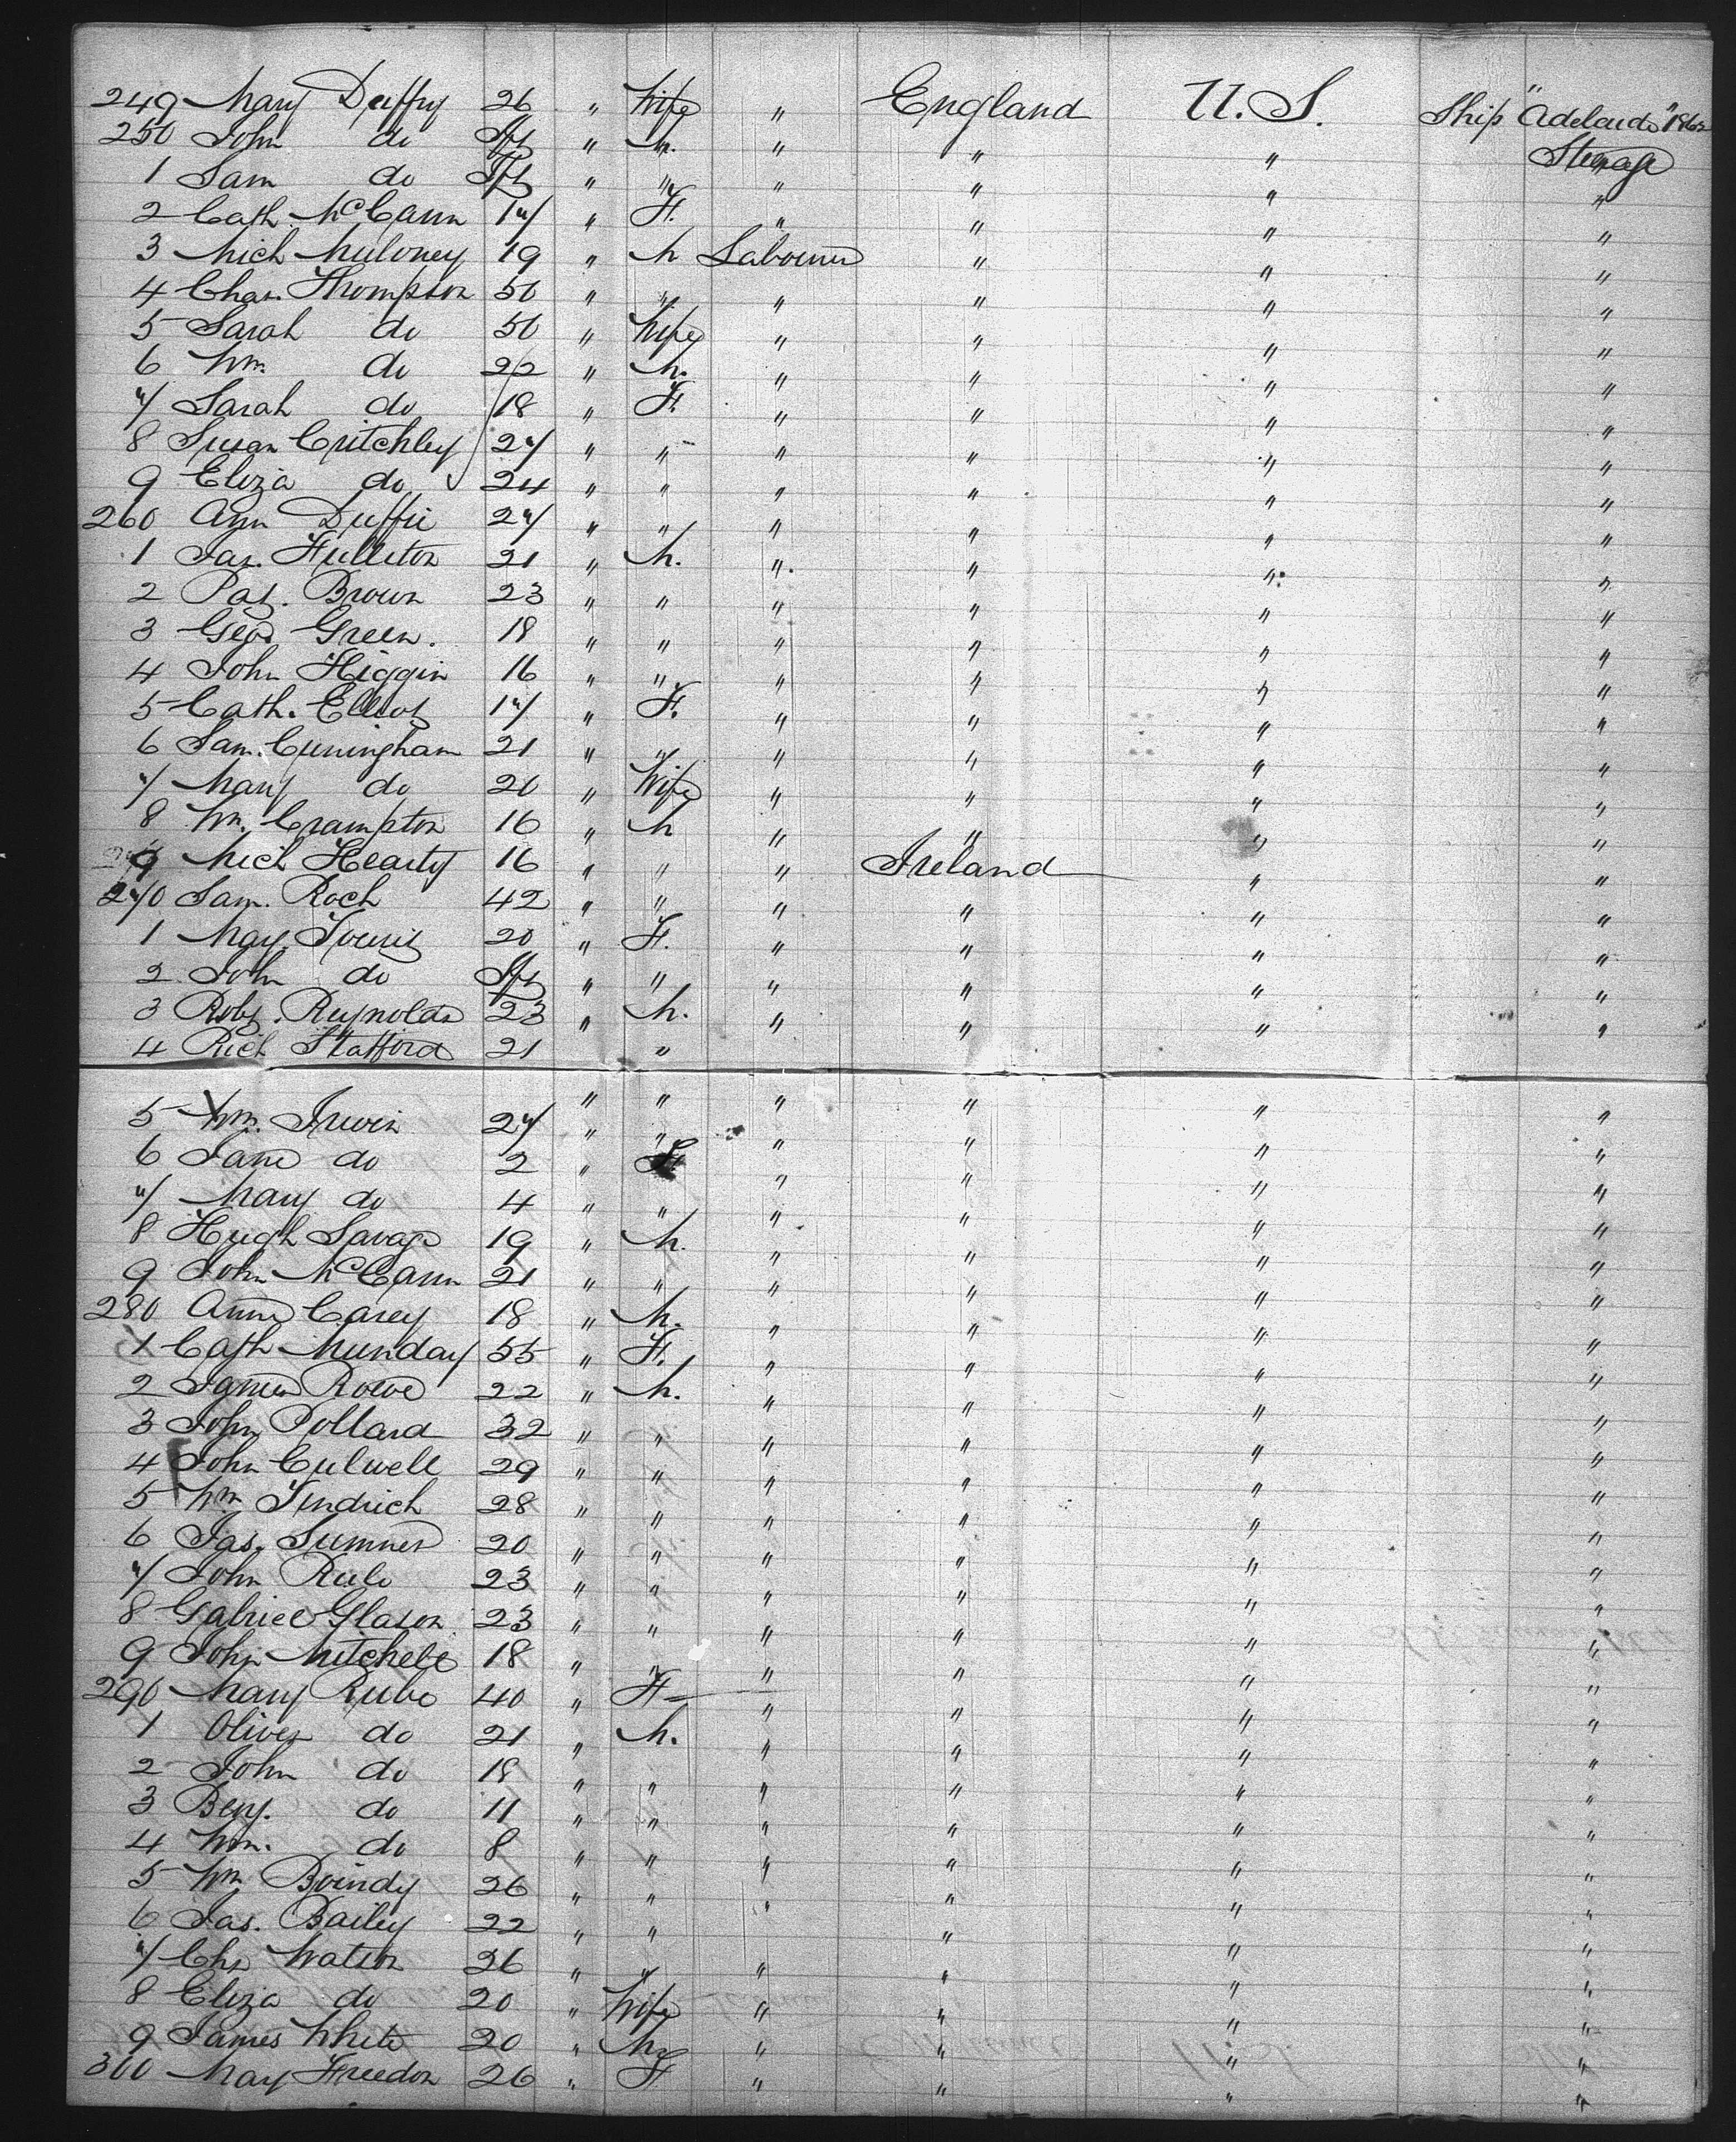 249 Mary Duffy 26 " Wife " England U.S. Ship "Adelaide" 1862
250 John do Inft " M. " " " Steerage
1 Sam do Inft " " " " " "
2 Cath. McCann 17 " F. " " " "
3 Mich Muloney 19 " M Labourer " " "
4 Chas. Thompson 50 " " " " " "
5 Sarah do 50 " Wife " " " "
6 Wm. do 22 " M. " " " "
7 Sarah do 18 " F. " " " "
8 Susan Critchley 27 " " " " " "
9 Eliza do 24 " " " " " "
260 Ann Duffie 27 " " " " " "
1 Jas. Fulleton 21 " M. " " " "
2 Pat. Brown 23 " " " " " "
3 Geo. Green. 18 " " " " " "
4 John Higgin 16 " " " " " "
5 Cath. Elliot 17 " F. " " " "
6 Sam. Cuningham 21 " " " " " "
7 Mary do 20 " Wife " " " "
8 Wm. Crampton 16 " M " " " "
9 Mich Hearty 16 " " " Ireland " "
270 Sam. Roch 42 " " " " " "
1 May 20 " F. " " " "
2 John do Inft " " " " " "
3 Robt. Reynolds 23 " M. " " " "
4 Rich Stafford 21 " " " " " "
5 Wm. Irwin 27 " " " " " "
6 Jane do 2 " F. " " " "
7 Mary do 4 " " " " " "
8 Hugh Savage 19 " M. " " " "
9 John McCann 21 " " " " " "
280 Anne Carey 18 " M. " " " "
1 Cath Munday 55 " F. " " " "
2 Rowe 22 " M. " " " "
3 John Pollard 32 " " " " " "
4 John Culwell 29 " " " " " "
5 Wm Tendrich 28 " " " " " "
6 Jas. Sumner 20 " " " " " "
7 John Rule 23 " " " " " "
8 Gabriel Glason 23 " " " " " "
9 John Mitchell 18 " " " " " "
290 Mary Rube 40 " F " " " "
1 Oliver do 21 " M. " " " "
2 John do 18 " " " " " "
3 Benj. do 11 " " " " " "
4 Wm. do 8 " " " " " "
5 Wm Boindy 26 " " " " " "
6 Jas. Bailey 22 " " " " "
7 Chs Watson 26 " " " " " "
8 Eliza do 20 " Wife " " " "
9 James White 20 " M " " " "
300 May Freedon 26 " F " " " "